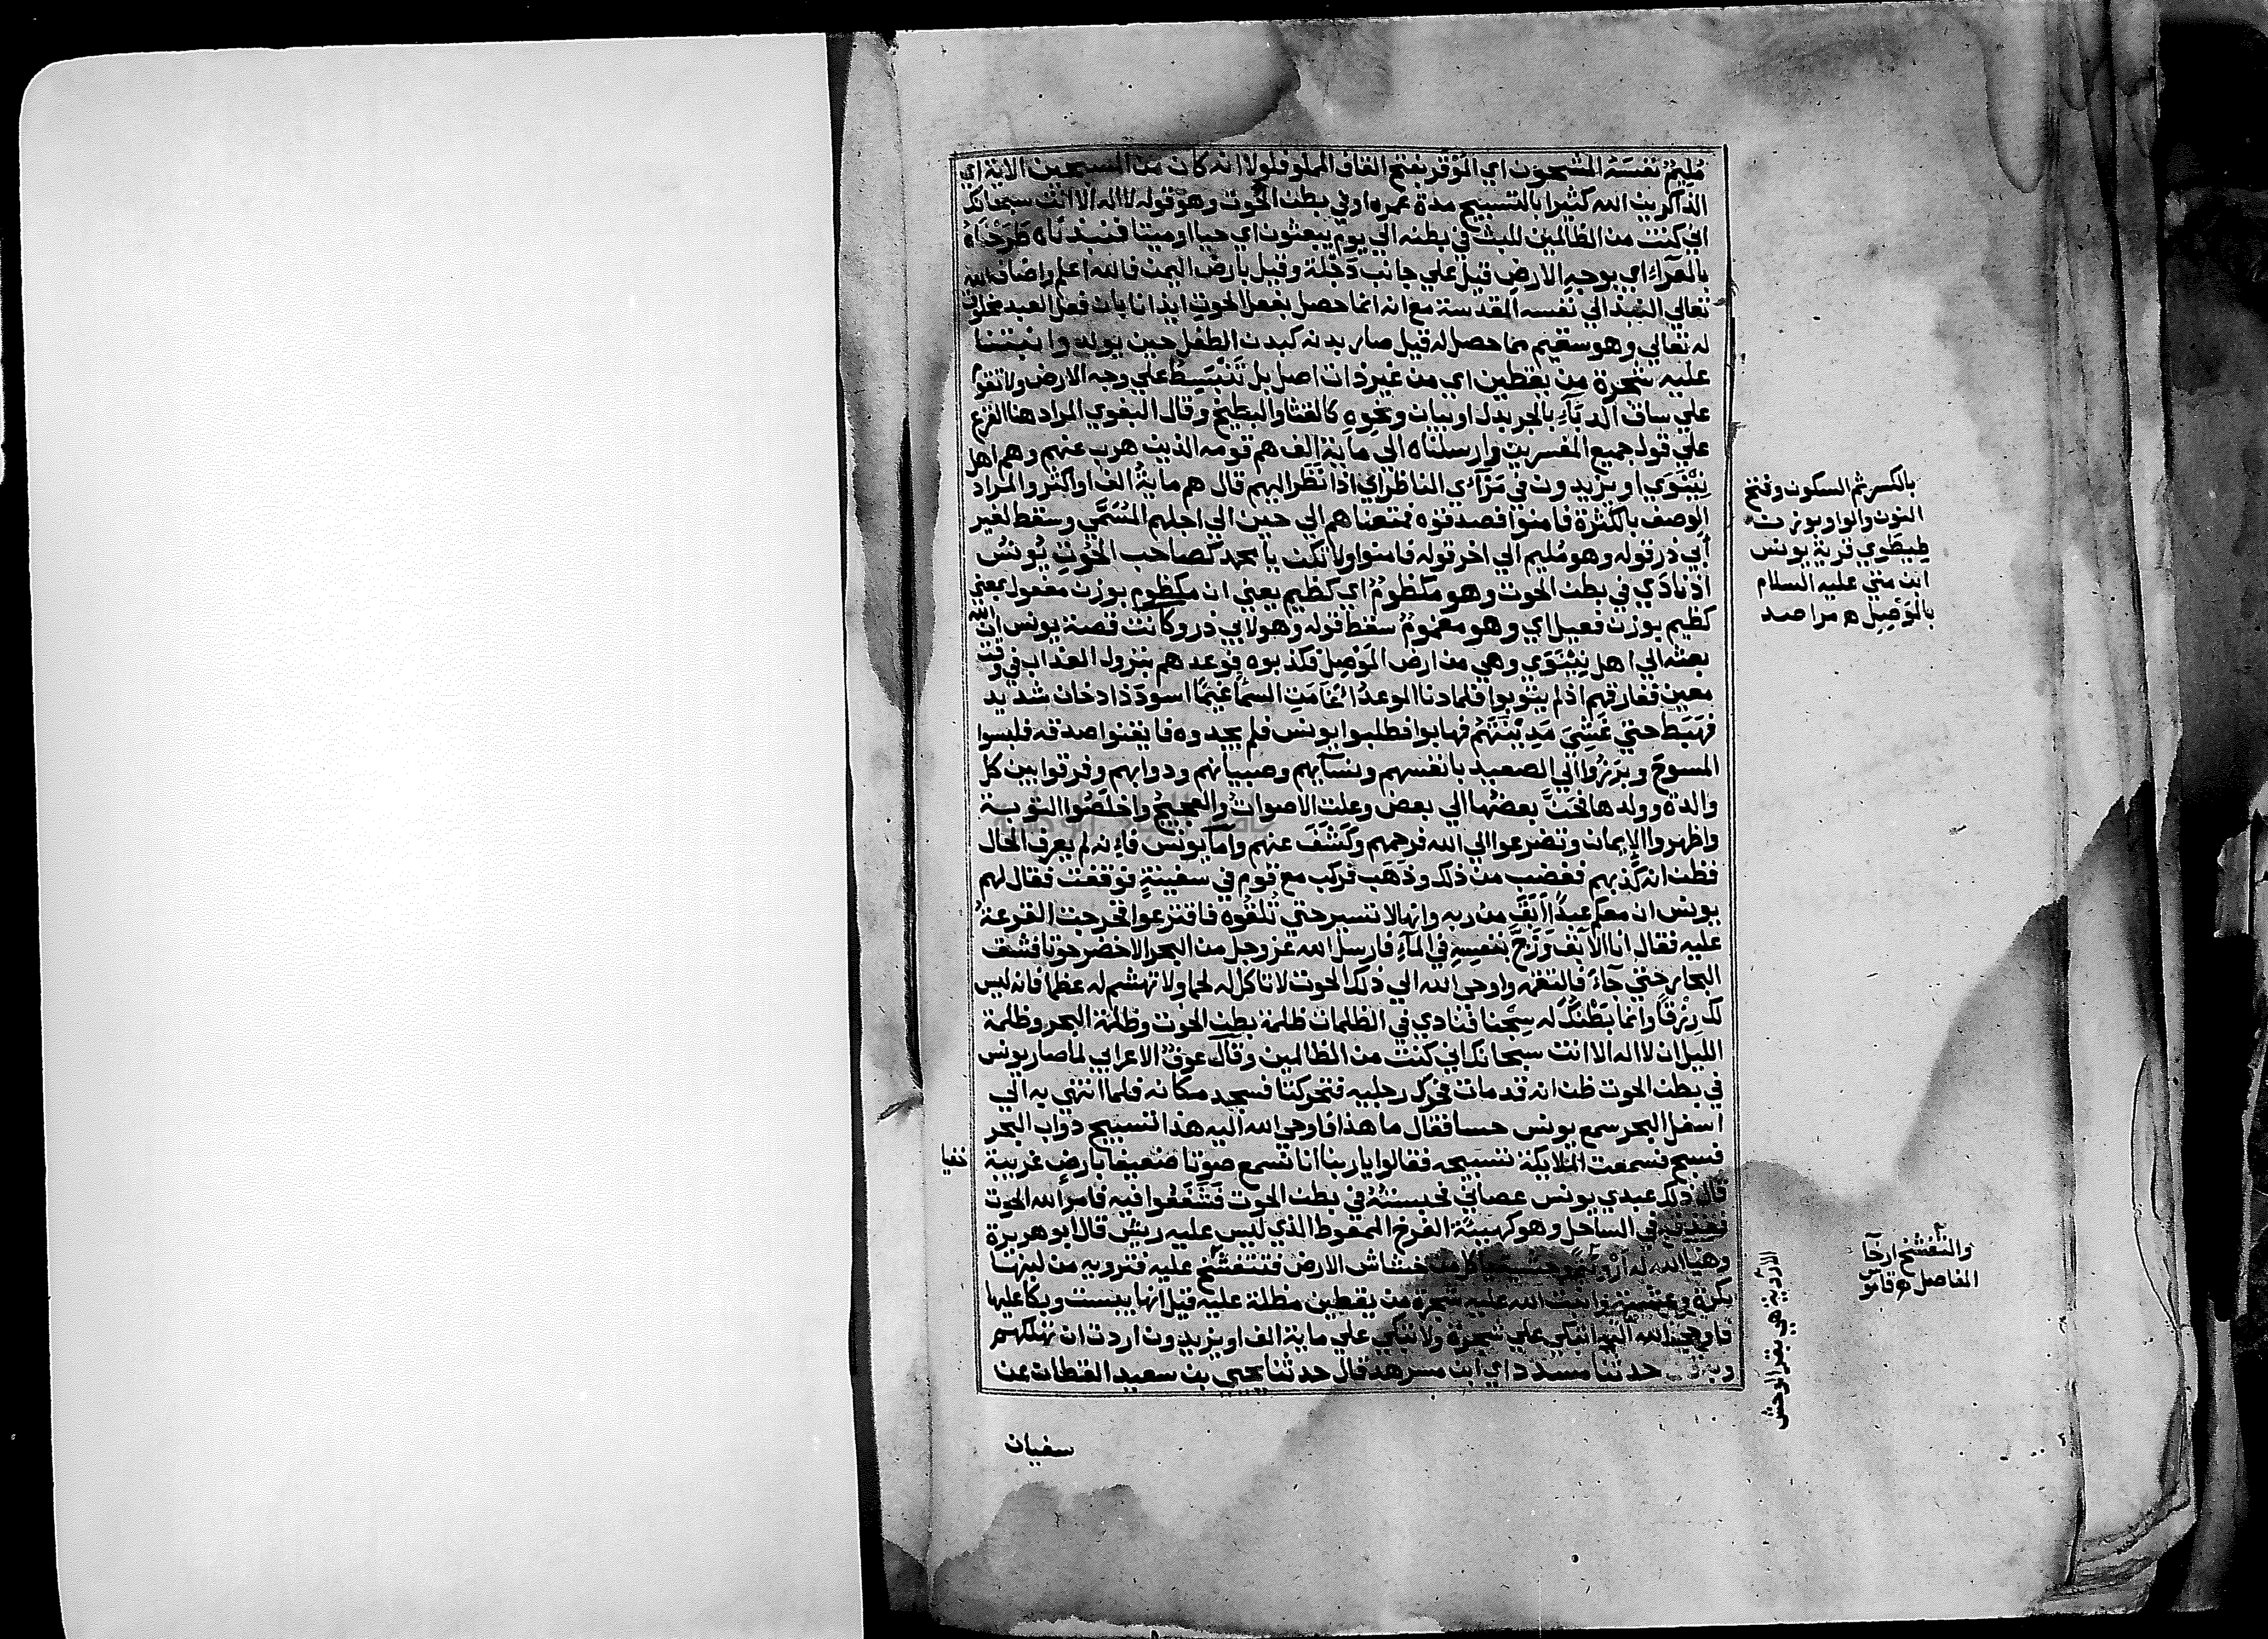 مُلِيمٌ نفسَهُ المشحون اي المُوقَر بفتح القاف المملو فلولا انه كان من المسبحين الاية اي
الذاكرين الله كثيرا بالتسبيح مدة عمره او في بطن الحوت وهو قوله لا اله الا انت سبحانك
اني كنت من الظالمين للبث في بطنه الي يوم يبعثون اي حيا او ميتا فنبذناه طَرَحْنَاهُ
بالعرآءِ اي بوجه الارض قيل علي جانب دَجْلة وقيل بارض اليمن فالله اعلم واضاف الله
تعالي النبذ الي نفسه المقدسة مع انه انما حصل بفعل الحوت ايذانا بان فعل العبد مخلوق
له تعالي وهو سقيم مما حصل له قيل صار بدنه كبدن الطفل حين يولد وانبتنا
عليه شجرة من يقطين اي من غير ذات اصل بل تَنْبَسِطُ علي وجه الارض ولا تقوم
علي ساق الدبّآءِ بالجر بدل او بيان ونحوِهِ كالقثا والبطيخ وقال البغوي المراد هنا القرع
علي قول جميع المفسرين وارسلناه الي ماية الف هم قومه الذين هرب عنهم وهم اهل
نِيْنَوَي او يزيدون في مَرْآءي الناظر اي اذا نظر اليهم قال هم مايةُ الف او اكثر والمراد
الوصف بالكثرة فامنوا فصدقوه فمتعناهم الي حين الي اجلهم المُسَمَّي وسقط لغير
أبي ذر قوله وهو مُليم الي اخر قوله فامنوا ولا تكن يا محمد كصاحب الحُوتِ يُونسُ
اذ نادَي في بطن الحوت وهو مكظومٌ اي كظيم يعني ان مكظوم بوزن مفعول بمعني
كظيم بوزن فعيل اي وهو مغمومٌ سقط قوله وهو لابي ذر وكانت قصة يونس ان الله
بعثه الي اهل نِيْنَوَي وهي من ارض المَوْصِل فكذبوه فوعدهم بنزول العذاب في وقت
معين ففارقهم اذ لم يتوبوا فلما دنا الموعد اغامَتِ السمآءُ غيمًا اسودَ ذا دخان شديد
فهَبَط حتي غَشِيَ مَدِيْنَتَهُمْ فهابوا فطلبوا يونس فلم يجدوه فايقنوا صدقه فلبسوا
المسوحَ وبرَزُوا الي الصعيد بانفسهم ونسآيهم وصبيانهم ودوابهم وفرقوا بين كل
والدة وولدها فحَنَّ بعضُها الي بعض وعلت الاصواتُ والعجيجُ واخلَصُوا التوبة
واظهروا الايمان وتضرعوا الي الله فرحمهم وكَشَفَ عنهم واما يونس فانه لم يعرف الحال
فظن انه كذبهم فغضب من ذلك وذهَب فركب مع قوم في سفينةٍ فوقفت فقال لهم
يونس ان معكم عبدًا أبَقَ من ربه وانها لا تسير حتي تلقُوه فاقترعوا فخرجت القرعةُ
عليه فقال انا الآبِق وَزَجَّ بنفسِهِ في المآءِ فارسل الله عز وجل من البحر الاخضر حوتا فشق
البحار حتي جآءَ فالتقمه واوحي الله الي ذلك الحوت لا تاكل له لحما ولا تهشم له عظما فانه ليس
لك رِزْقًا وانما بَطْنُكَ له سِجْنا فنادي في الظلمات ظلمة بطن الحوت وظلمة البحر وظلمة
الليل ان لا اله الا انت سبحانك اني كنت من الظالمين وقال عوفٌ الاعرابي لما صار يونس
في بطن الحوت ظن انه قد مات فحرك رجليه فتحركتا فسجد مكانه فلما انتهي به الي
اسفل البحر سمع يونس حسا فقال ما هذا فاوحي الله اليه هذا تسبيح دواب البحر
فسبح فسمعت الملايكة تسبيحه فقالوا يا ربنا انا نسمع صوتا ضعيفا بارضٍ غريبة
قال ذلك عبدي يونس عصاني فحبستُهُ في بطن الحوت فَشَفَعُوا فيه فامر الله الحوت
فقذفه في الساحل وهو كهيئة الفرخ الممعوط الذي ليس عليه ريش قال ابو هريرة
وهيا الله له أُرْوِيَّةً وحشية تاكل من خشاش الارض فتتفشَّخُ عليه فترويه من لبنها
بكرة وعشية وانبت الله عليه شجرة من يقطين مظلة عليه قيل انها يبست وبكا عليها
فاوحي الله اليه اتبكي علي شجرة ولا تبكي علي ماية الف او يزيدون اردت ان تهلكهم
وبه قال حدثنا مسدد اي ابن مسرهد قال حدثنا يحيي بن سعيد القطان عن
سفيان
بالكسر ثم السكون وفتح
النون والواو بوزن
طِيطَوي قرية يونس
ابن متي عليه السلام
بالمَوْصِل ه مراصد
خفيا
والتَّفَشُّخ ارخآ
المفاصل ه قاموس
الأُرْوِيَة هي بقر الوحش